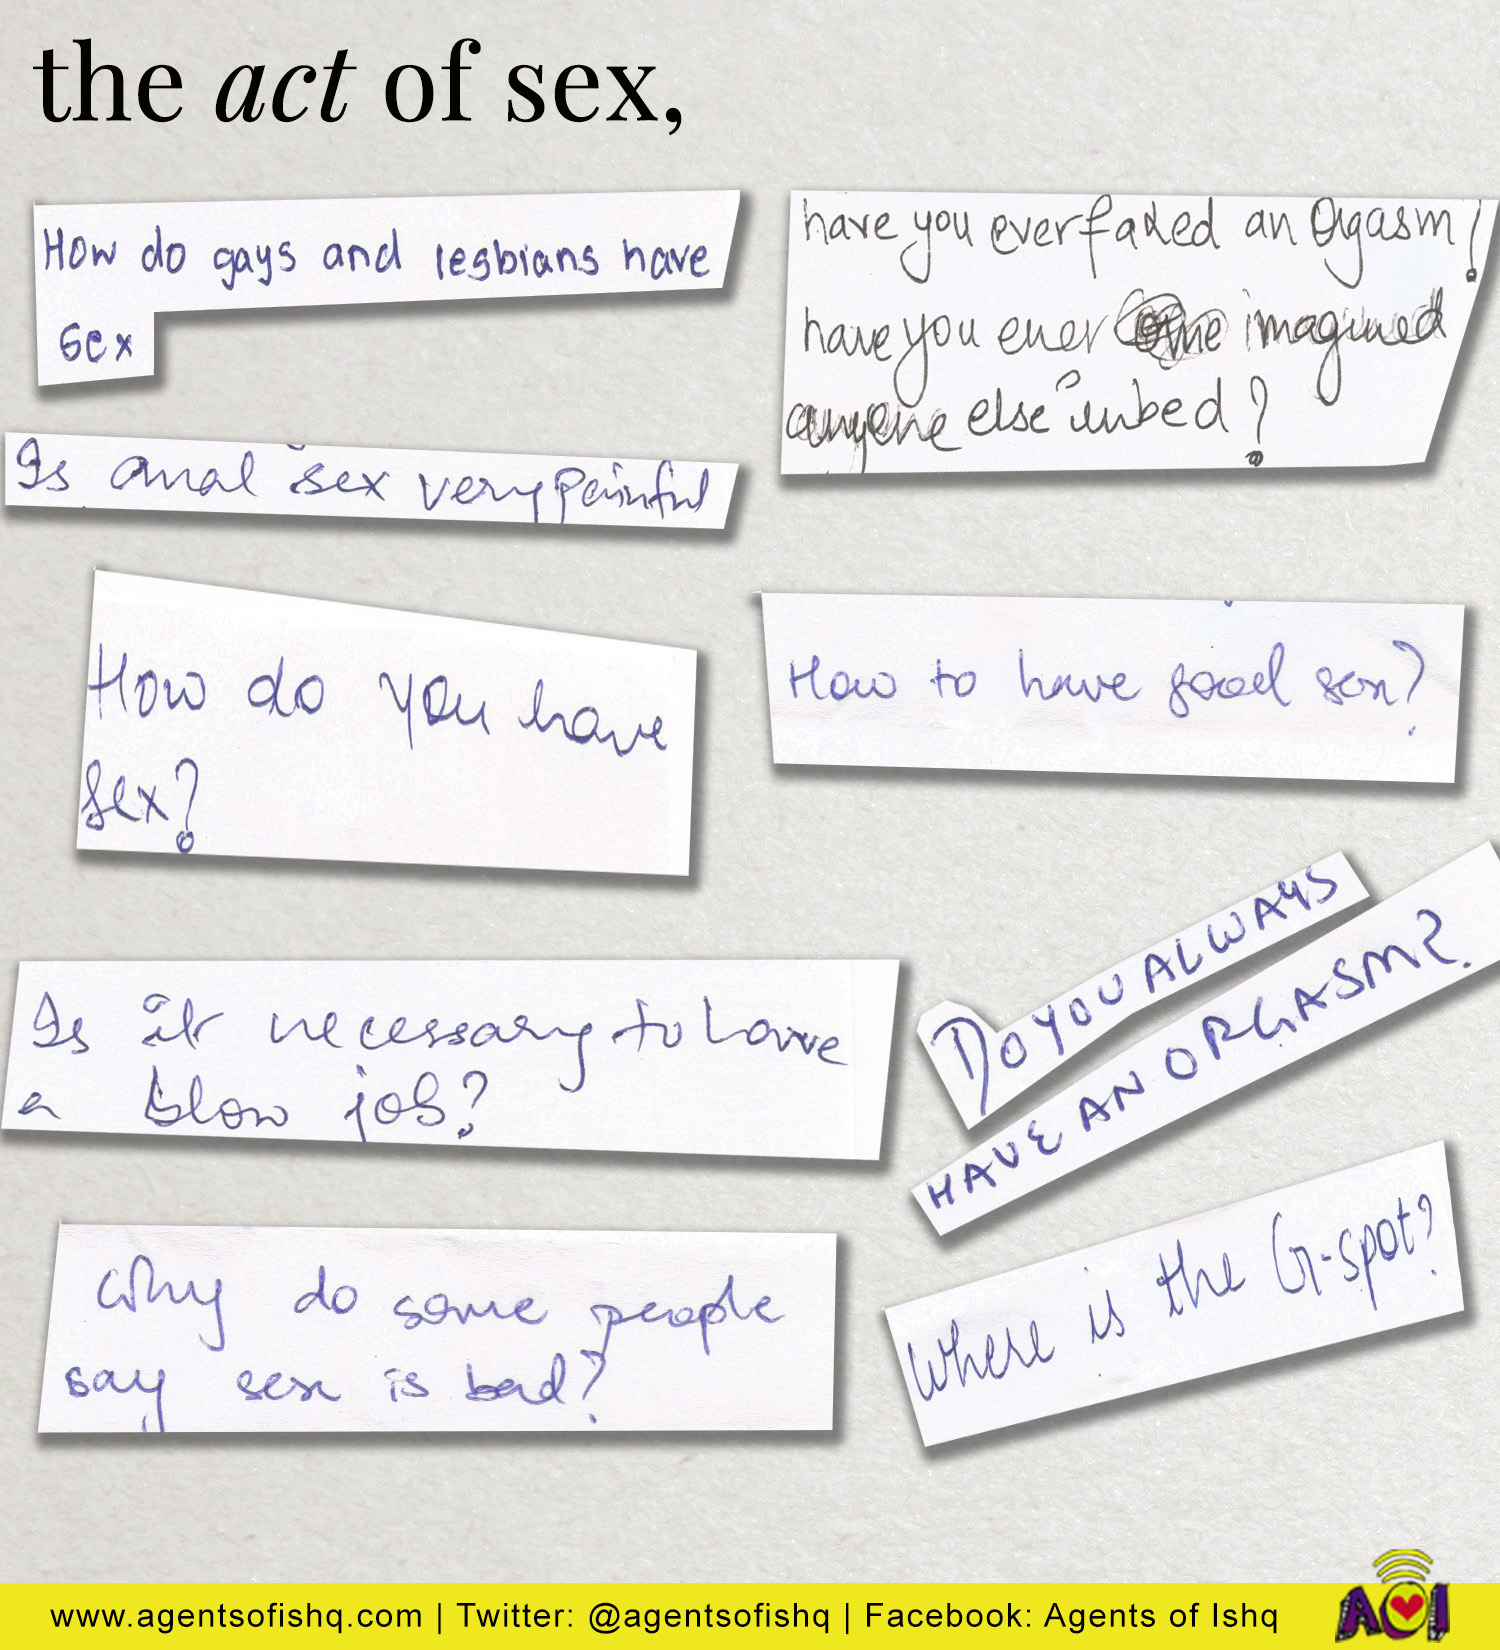 the act of sex,
How do gays and lesbians have
sex
have you ever faked an Orgasm?
have you ever imagined
anyone else in bed?
Is anal sex very Painful
How do you have
sex?
How to have good sex?
DO YOU ALWAYS
HAVE AN ORGASM?
Is it necessary to have
a blow job?
Where is the G-spot?
Why do some people
say sex is bad?
www.agentsofishq.com | Twitter: @agentsofishq | Facebook: Agents of Ishq
AOI